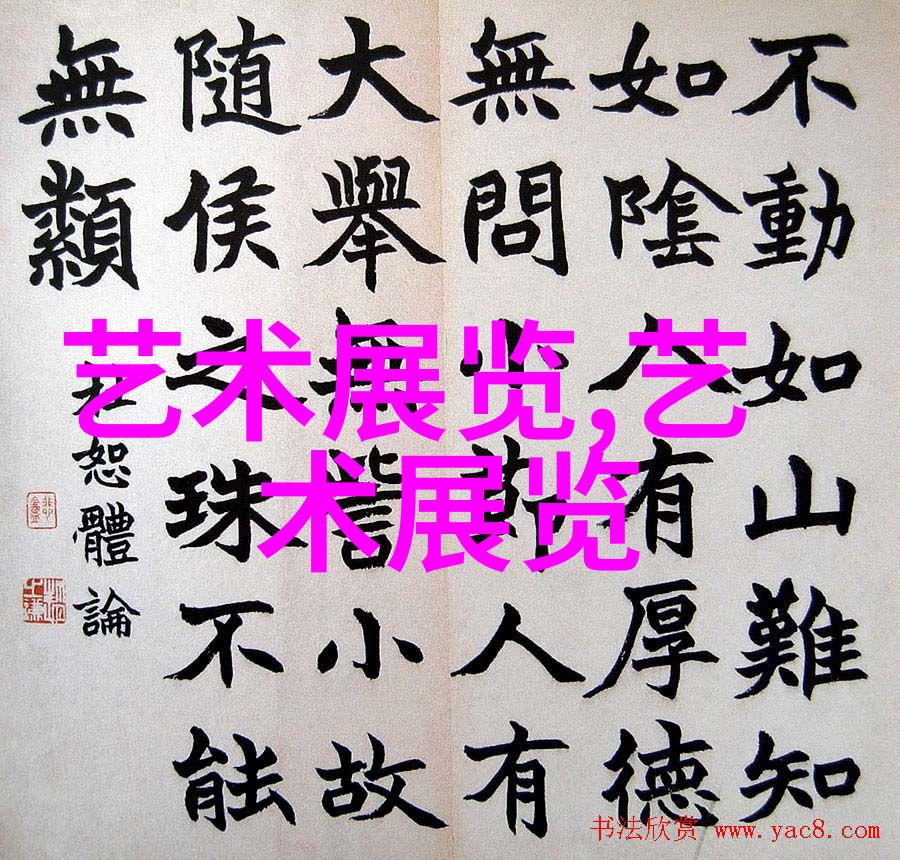 不動如山難知
如陰人有厚德
無問小節人有
大舉無訾小故
隨侯之珠不能
無纇
恕體論
艺术展览,艺
术展览
书法欣赏 www.yac8.com